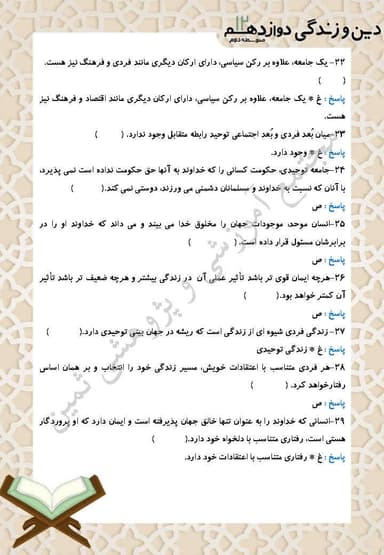 دین و زندگی دوازدهم ۱۲
متوسطه دوم
۲۲- یک جامعه، علاوه بر رکن سیاسی، دارای ارکان دیگری مانند فردی و فرهنگ نیز هست.
( )
پاسخ : غ * یک جامعه، علاوه بر رکن سیاسی، دارای ارکان دیگری مانند اقتصاد و فرهنگ نیز
هست.
۲۳-میان بُعد فردی و بُعد اجتماعی توحید رابطه متقابل وجود ندارد. ( )
پاسخ : غ * وجود دارد.
۲۴-جامعه توحیدی، حکومت کسانی را که خداوند به آنها حق حکومت نداده است نمی پذیرد،
با آنان که نسبت به خداوند و مسلمانان دشمنی می ورزند، دوستی نمی کند.( )
پاسخ : ص
۲۵-انسان موحد، موجودات جهان را مخلوق خدا می بیند و می داند که خداوند او را در
برابرشان مسئول قرار داده است. ( )
پاسخ : ص
۲۶-هرچه ایمان قوی تر باشد تأثیر عملی آن در زندگی بیشتر و هرچه ضعیف تر باشد تأثیر
آن کمتر خواهد بود.( )
پاسخ : ص
۲۷- زندگی فردی شیوه ای از زندگی است که ریشه در جهان بینی توحیدی دارد.( )
پاسخ : غ * زندگی توحیدی
۲۸-هر فردی متناسب با اعتقادات خویش، مسیر زندگی خود را انتخاب و بر همان اساس
رفتارخواهد کرد. ( )
پاسخ : ص
۲۹-انسانی که خداوند را به عنوان تنها خالق جهان پذیرفته است و ایمان دارد که او پروردگار
هستی است، رفتاری متناسب با دلخواه خود دارد.( )
پاسخ : غ * رفتاری متناسب با اعتقادات خود دارد.